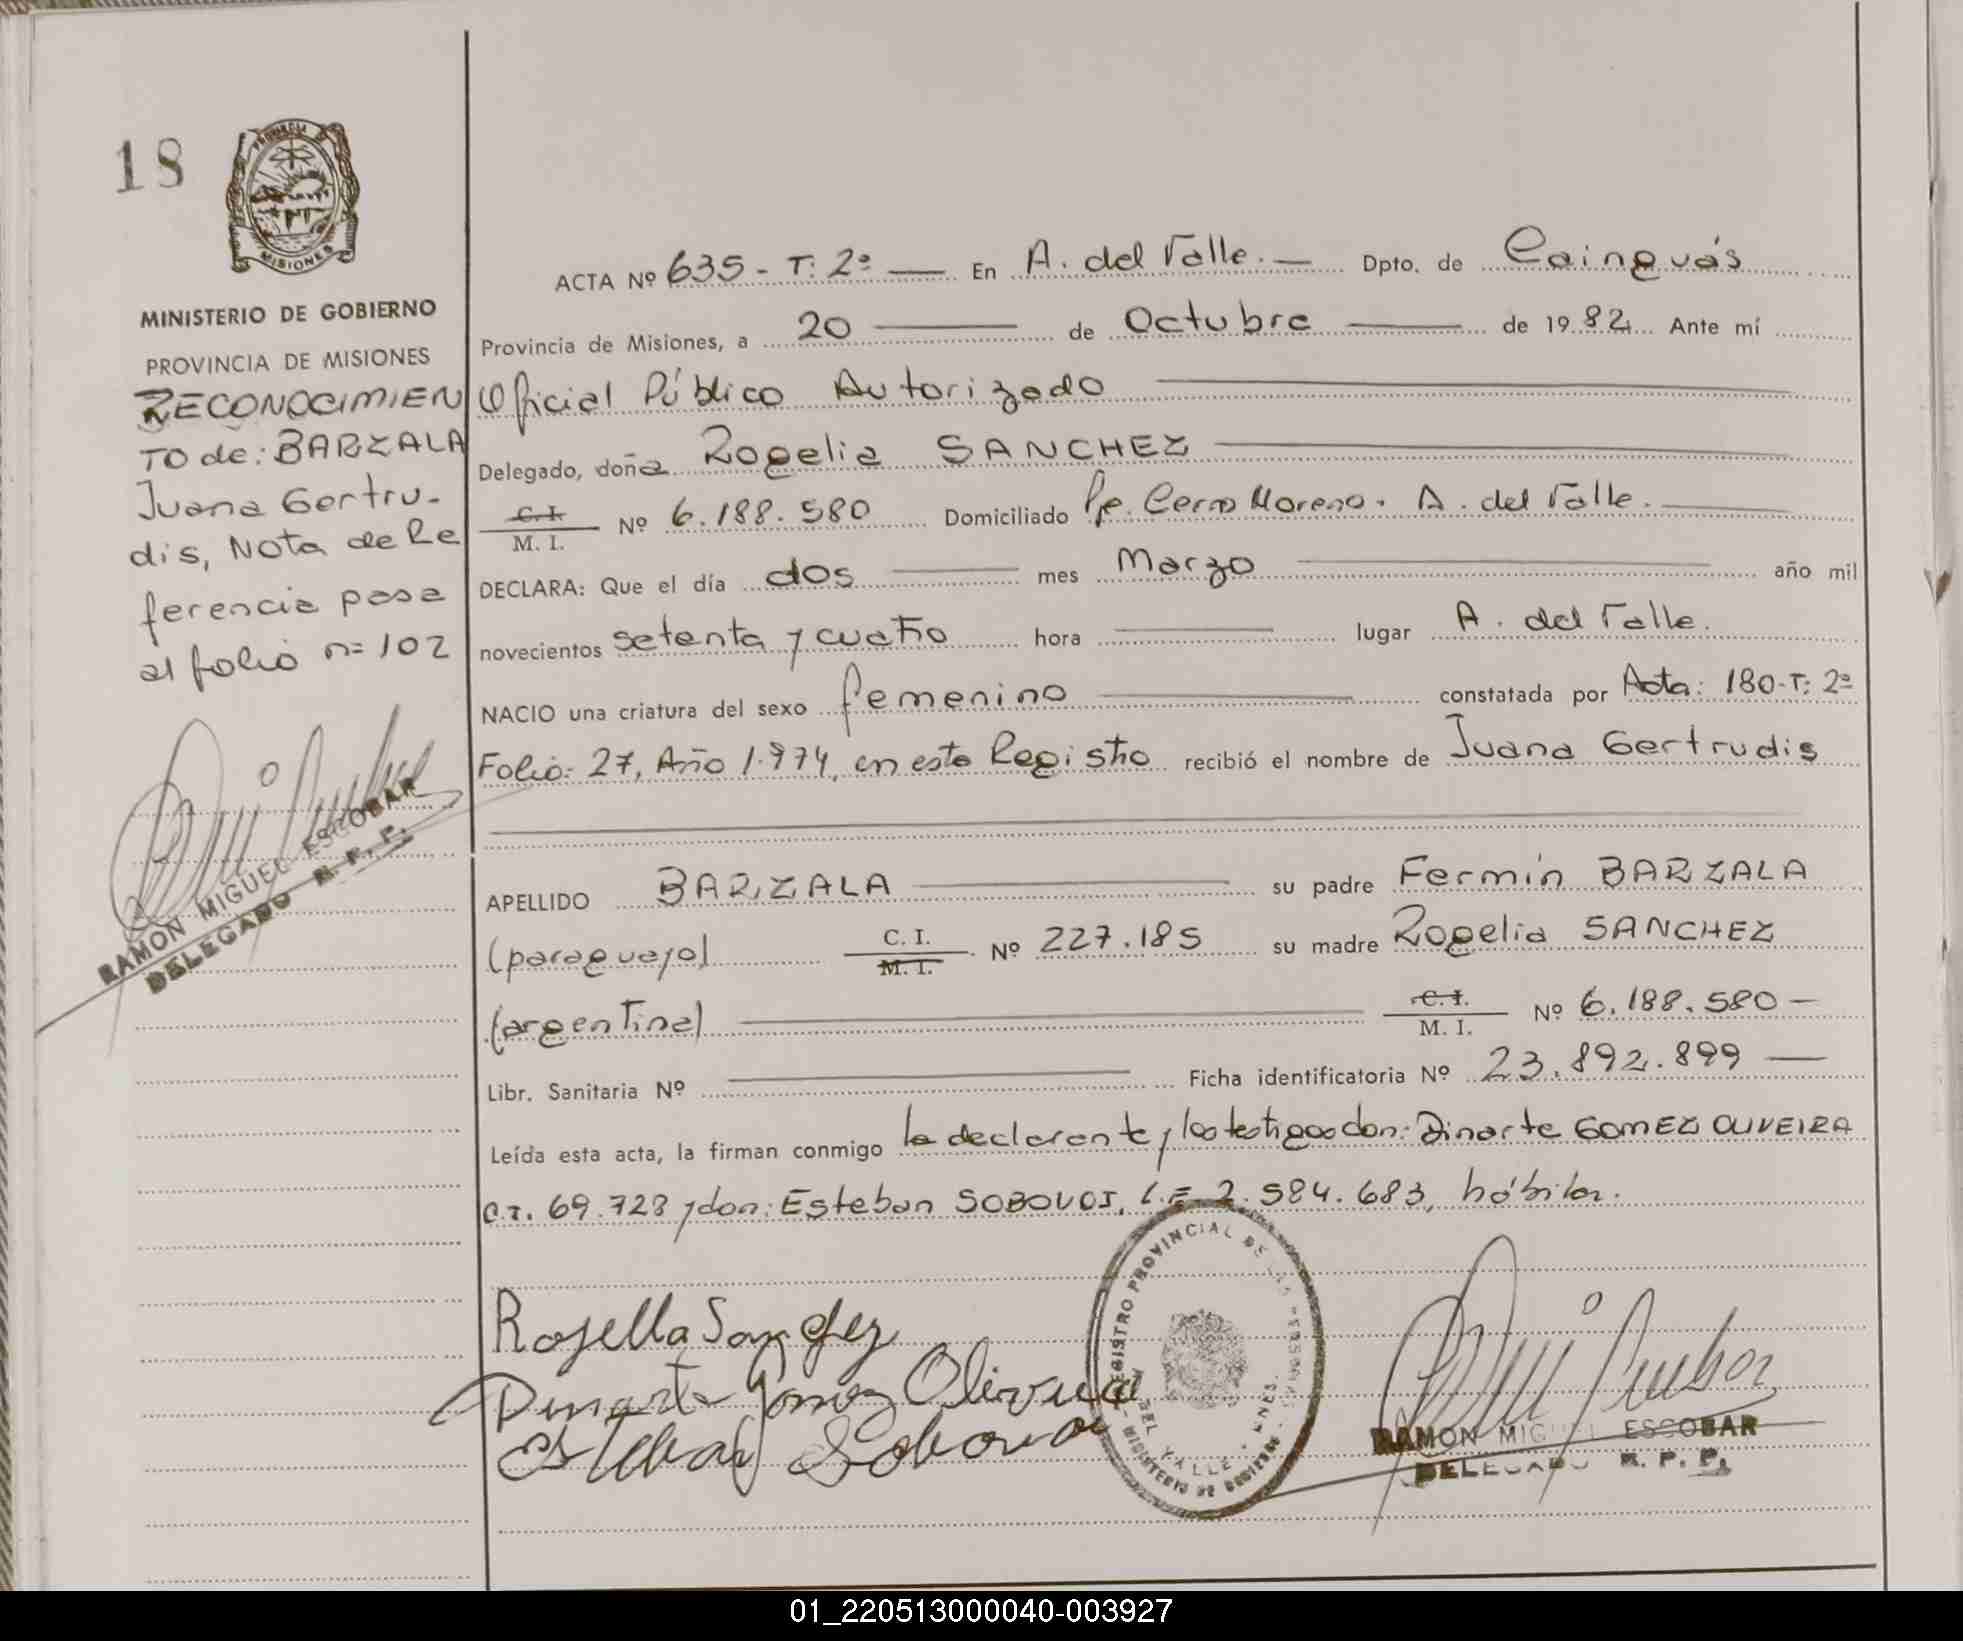 18
PROVINCIA
MISIONES
MINISTERIO DE GOBIERNO
PROVINCIA DE MISIONES
RECONOCIMIEN
TO de: BARZALA
Juana Gertru-
dis, Nota de Re
ferencia pasa
al folio n= 102
RAMON MIGUEL ESCOBAR
DELEGADO R. P. P.
ACTA Nº 635 - T: 2º — En A. del Valle. — Dpto. de Cainguás
Provincia de Misiones, a 20 — de Octubre — de 19 82 Ante mí
Oficial Público Autorizado
Delegado, doña Rogelia SANCHEZ
C. I.
M. I. Nº 6.188.580 Domiciliado Pje. Cerro Moreno. A. del Valle.
DECLARA: Que el día dos — mes Marzo — año mil
novecientos setenta y cuatro hora — lugar A. del Valle.
NACIO una criatura del sexo femenino — constatada por Acta: 180-T: 2º
Folio: 27, Año 1.974, en este Registro recibió el nombre de Juana Gertrudis
APELLIDO BARZALA — su padre Fermín BARZALA
(paraguayo) C. I.
M. I. Nº 227.185 su madre Rogelia SANCHEZ
(argentina) — C. I.
M. I. Nº 6.188.580 —
Libr. Sanitaria Nº — Ficha identificatoria Nº 23.892.899 —
Leída esta acta, la firman conmigo la declarante y los testigos don: Dinarte GOMEZ OLIVEIRA
C.I. 69.728 y don: Esteban SOBOVOI, L.E 2.584.683, hábiles.
Rogella Sanchez
Dinarte Gomez Oliveira
Esteban
REGISTRO PROVINCIAL DE LAS PERSONAS
DEL VALLE - MNES.
MINISTERIO DE GOBIERNO
RAMON MIGUEL ESCOBAR
DELEGADO R. P. P.
01_220513000040-003927